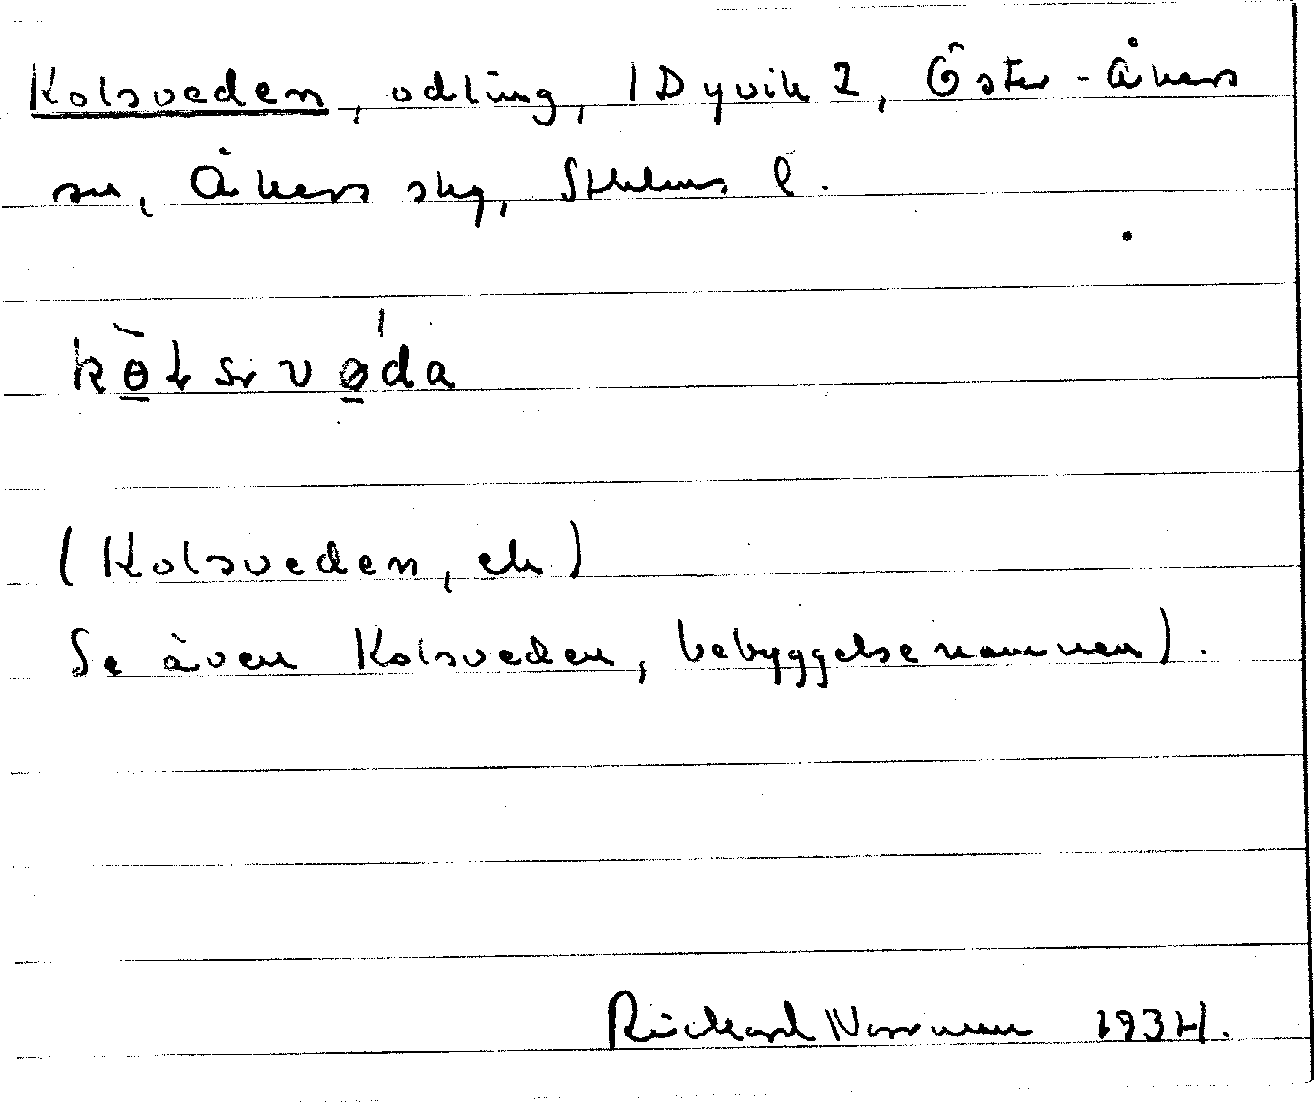 Kolsveden, odling, 1 Dyvik 2, Öster-Åkers
sn, Åkers skg, Sthlms l.
kɵ̀lsvɵda
(Kolsveden, ek)
Se även Kolsveden, bebyggelsenamnen).
Rickard 1934.